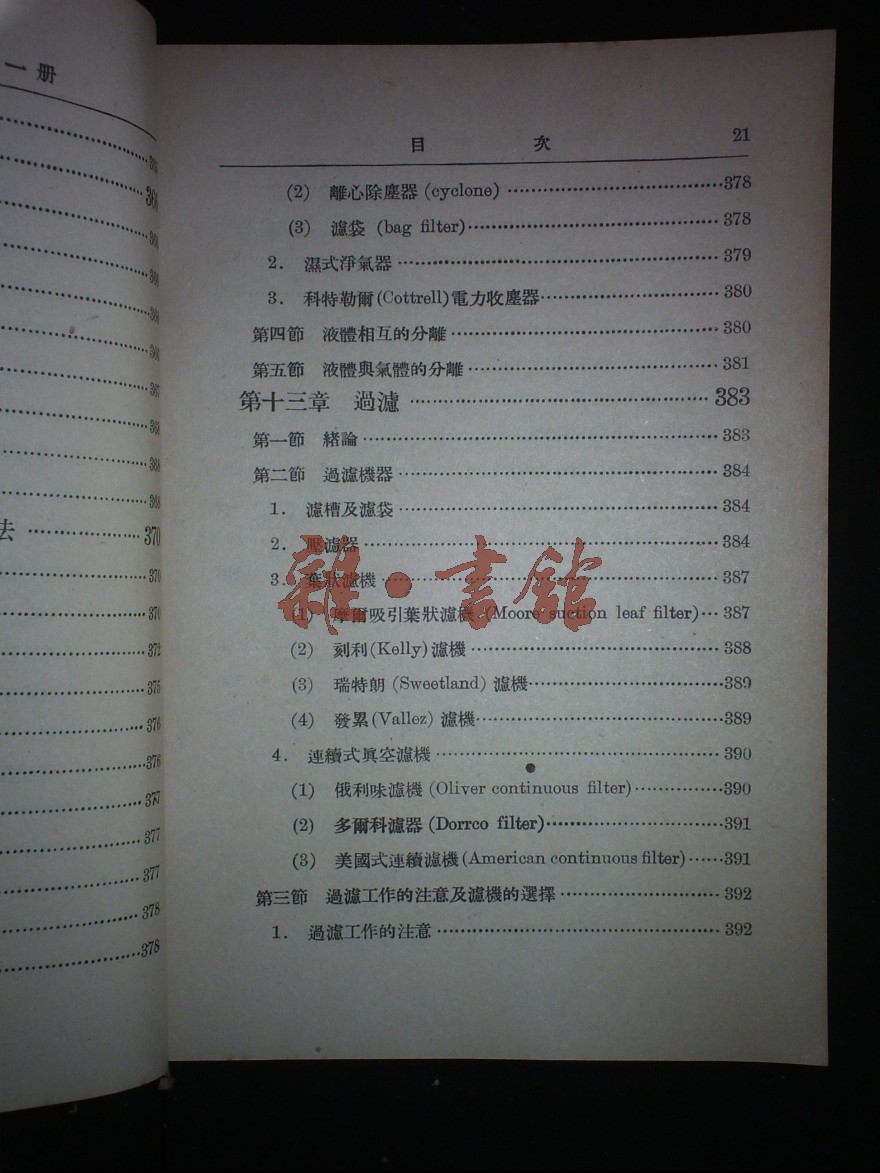 一册
365
366
366
366
366
366
367
368
368
368
法 370
370
370
372
375
376
376
377
377
377
378
378
目 次 21
(2) 離心除塵器 (cyclone) 378
(3) 濾袋 (bag filter) 378
2. 濕式淨氣器 379
3. 科特勒爾 (Cottrell) 電力收塵器 380
第四節 液體相互的分離 380
第五節 液體與氣體的分離 381
第十三章 過濾 383
第一節 緒論 383
第二節 過濾機器 384
1. 濾槽及濾袋 384
2. 壓濾器 384
3. 葉狀濾機 387
(1) 摩爾吸引葉狀濾機 (Moore suction leaf filter) 387
(2) 刻利 (Kelly) 濾機 388
(3) 瑞特朗 (Sweetland) 濾機 389
(4) 發累 (Vallez) 濾機 389
4. 連續式眞空濾機 390
(1) 俄利味濾機 (Oliver continuous filter) 390
(2) 多爾科濾器 (Dorrco filter) 391
(3) 美國式連續濾機 (American continuous filter) 391
第三節 過濾工作的注意及濾機的選擇 392
1. 過濾工作的注意 392
雜·書館